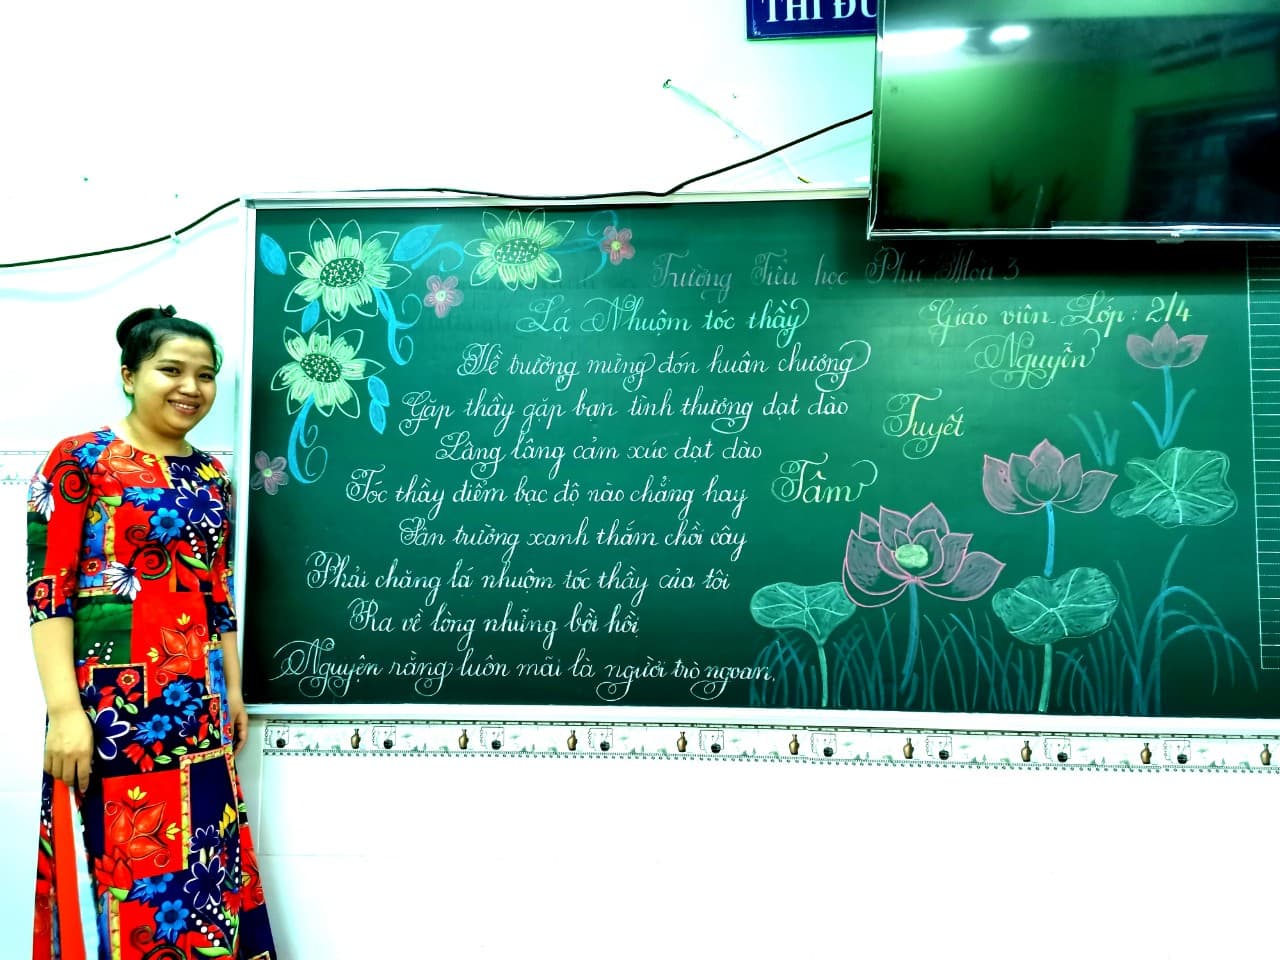 THI ĐU
Trường Tiểu học Phú Hòa 3
Lá Nhuộm tóc thầy
Giáo viên Lớp: 2/4
Nguyễn
Tuyết
Tâm
Về trường mừng đón huân chương
Gặp thầy gặp bạn tình thương dạt dào
Lâng lâng cảm xúc dạt dào
Tóc thầy điểm bạc độ nào chẳng hay
Sân trường xanh thắm chồi cây
Phải chăng lá nhuộm tóc thầy của tôi
Ra về lòng những bồi hồi
Nguyện rằng luôn mãi là người trò ngoan.